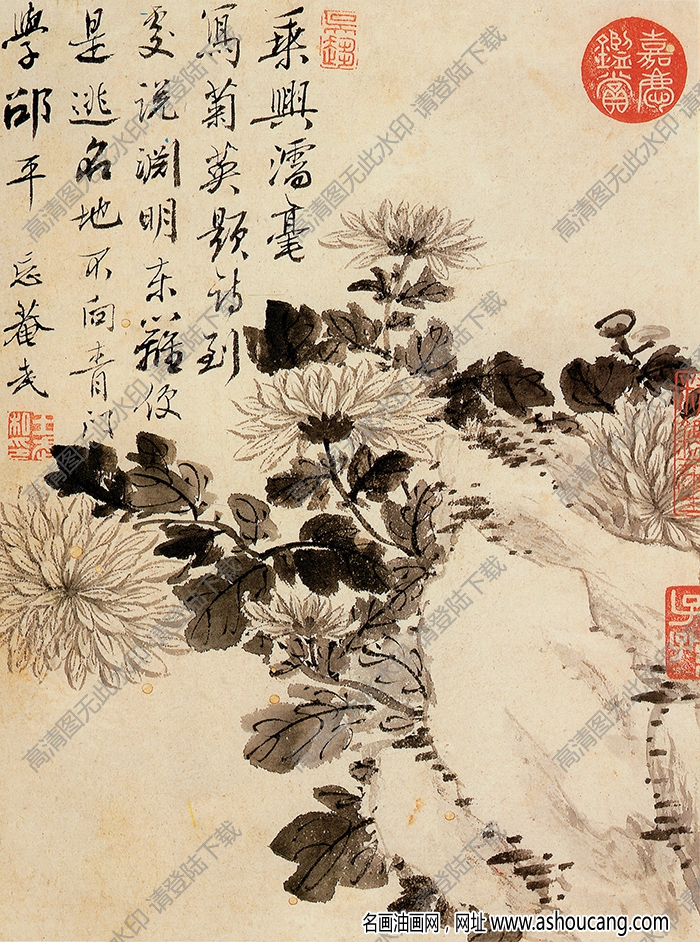 乘興濡毫
寫菊英題詩到
處說淵明東籬便
是逃名地不向青門
學邵平 忘菴武
嘉慶
鑑賞
高清图无此水印 请登陆下载
名画油画网，网址 www.ashoucang.com